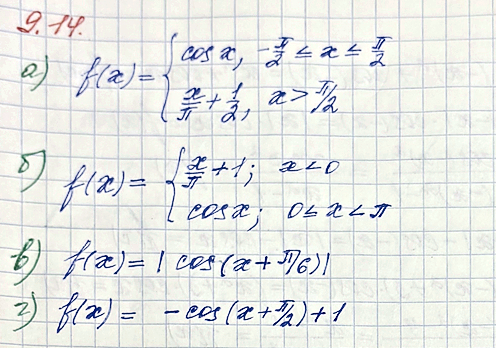 9.14.
а) f(x) = { cos x, -π/2 ≤ x ≤ π/2
x/π + 1/2, x > π/2
б) f(x) = { x/π + 1; x < 0
cos x; 0 ≤ x < π
в) f(x) = | cos(x + π/6)|
г) f(x) = - cos(x + π/2) + 1